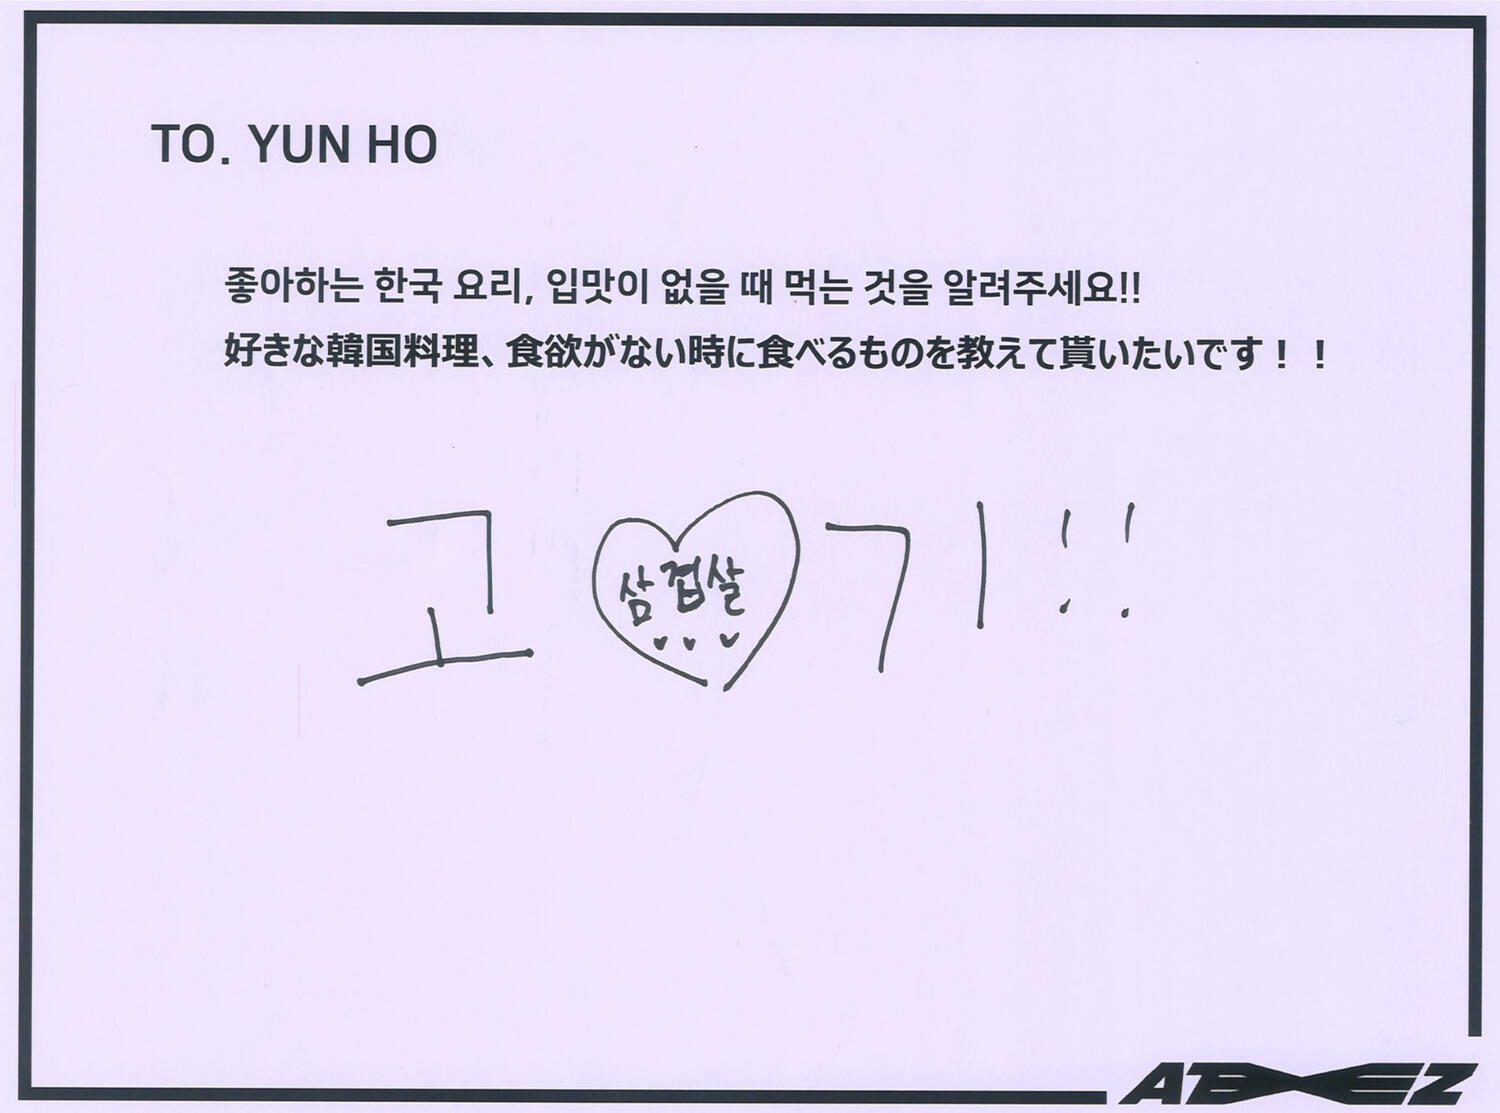 TO. YUN HO
좋아하는 한국 요리, 입맛이 없을 때 먹는 것을 알려주세요!!
好きな韓国料理、食欲がない時に食べるものを教えて貰いたいです！！
고 삼겹살 기!!
ATEEZ